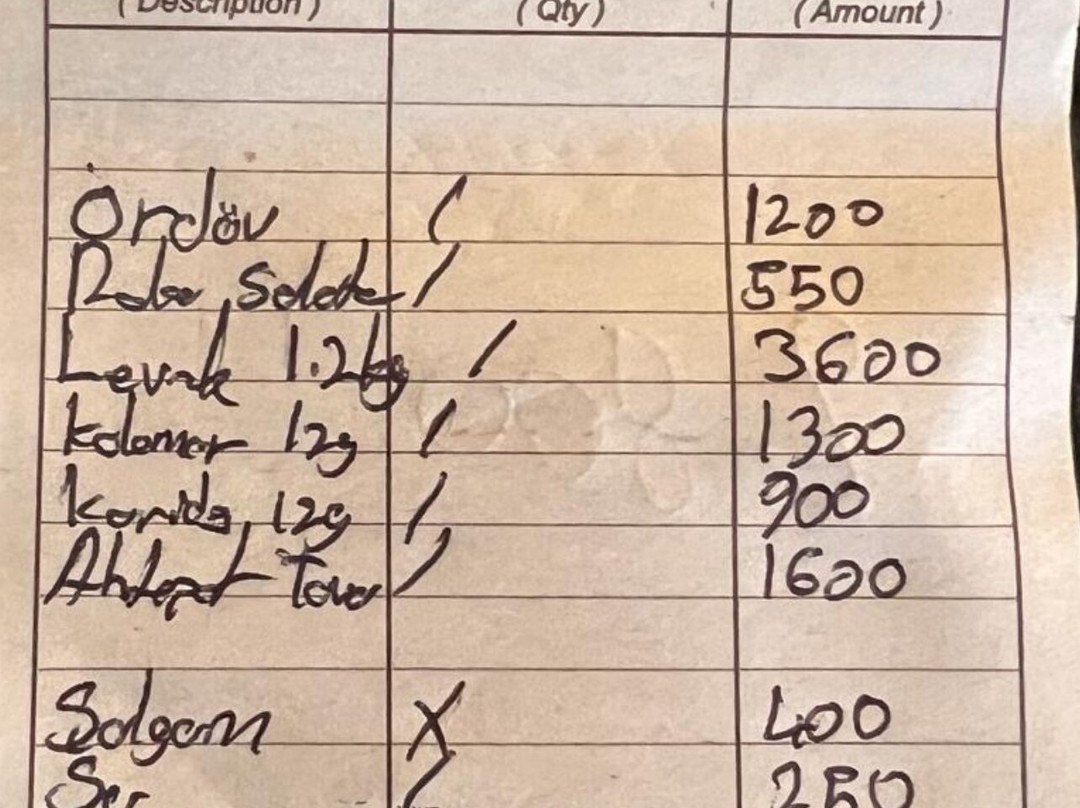 (Description) (Qty) (Amount)
Ordöv / 1200
Salata / 550
Levrek 1.2kg / 3600
Kalamar 12g / 1300
Karides 12g / 900
Ahtapot Tava / 1600
Salgam X 400
250